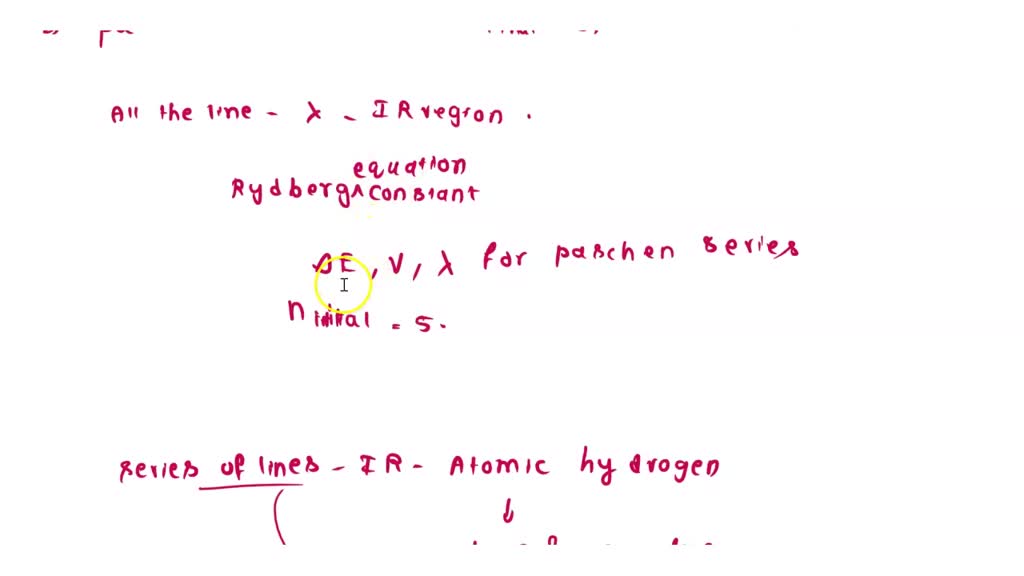 All the line - λ - IR vegion.
equation
Rydberg ^ constant
ΔE, ν, λ for paschen series
n initial = 5.
series of lines - IR - Atomic hydrogen
↓